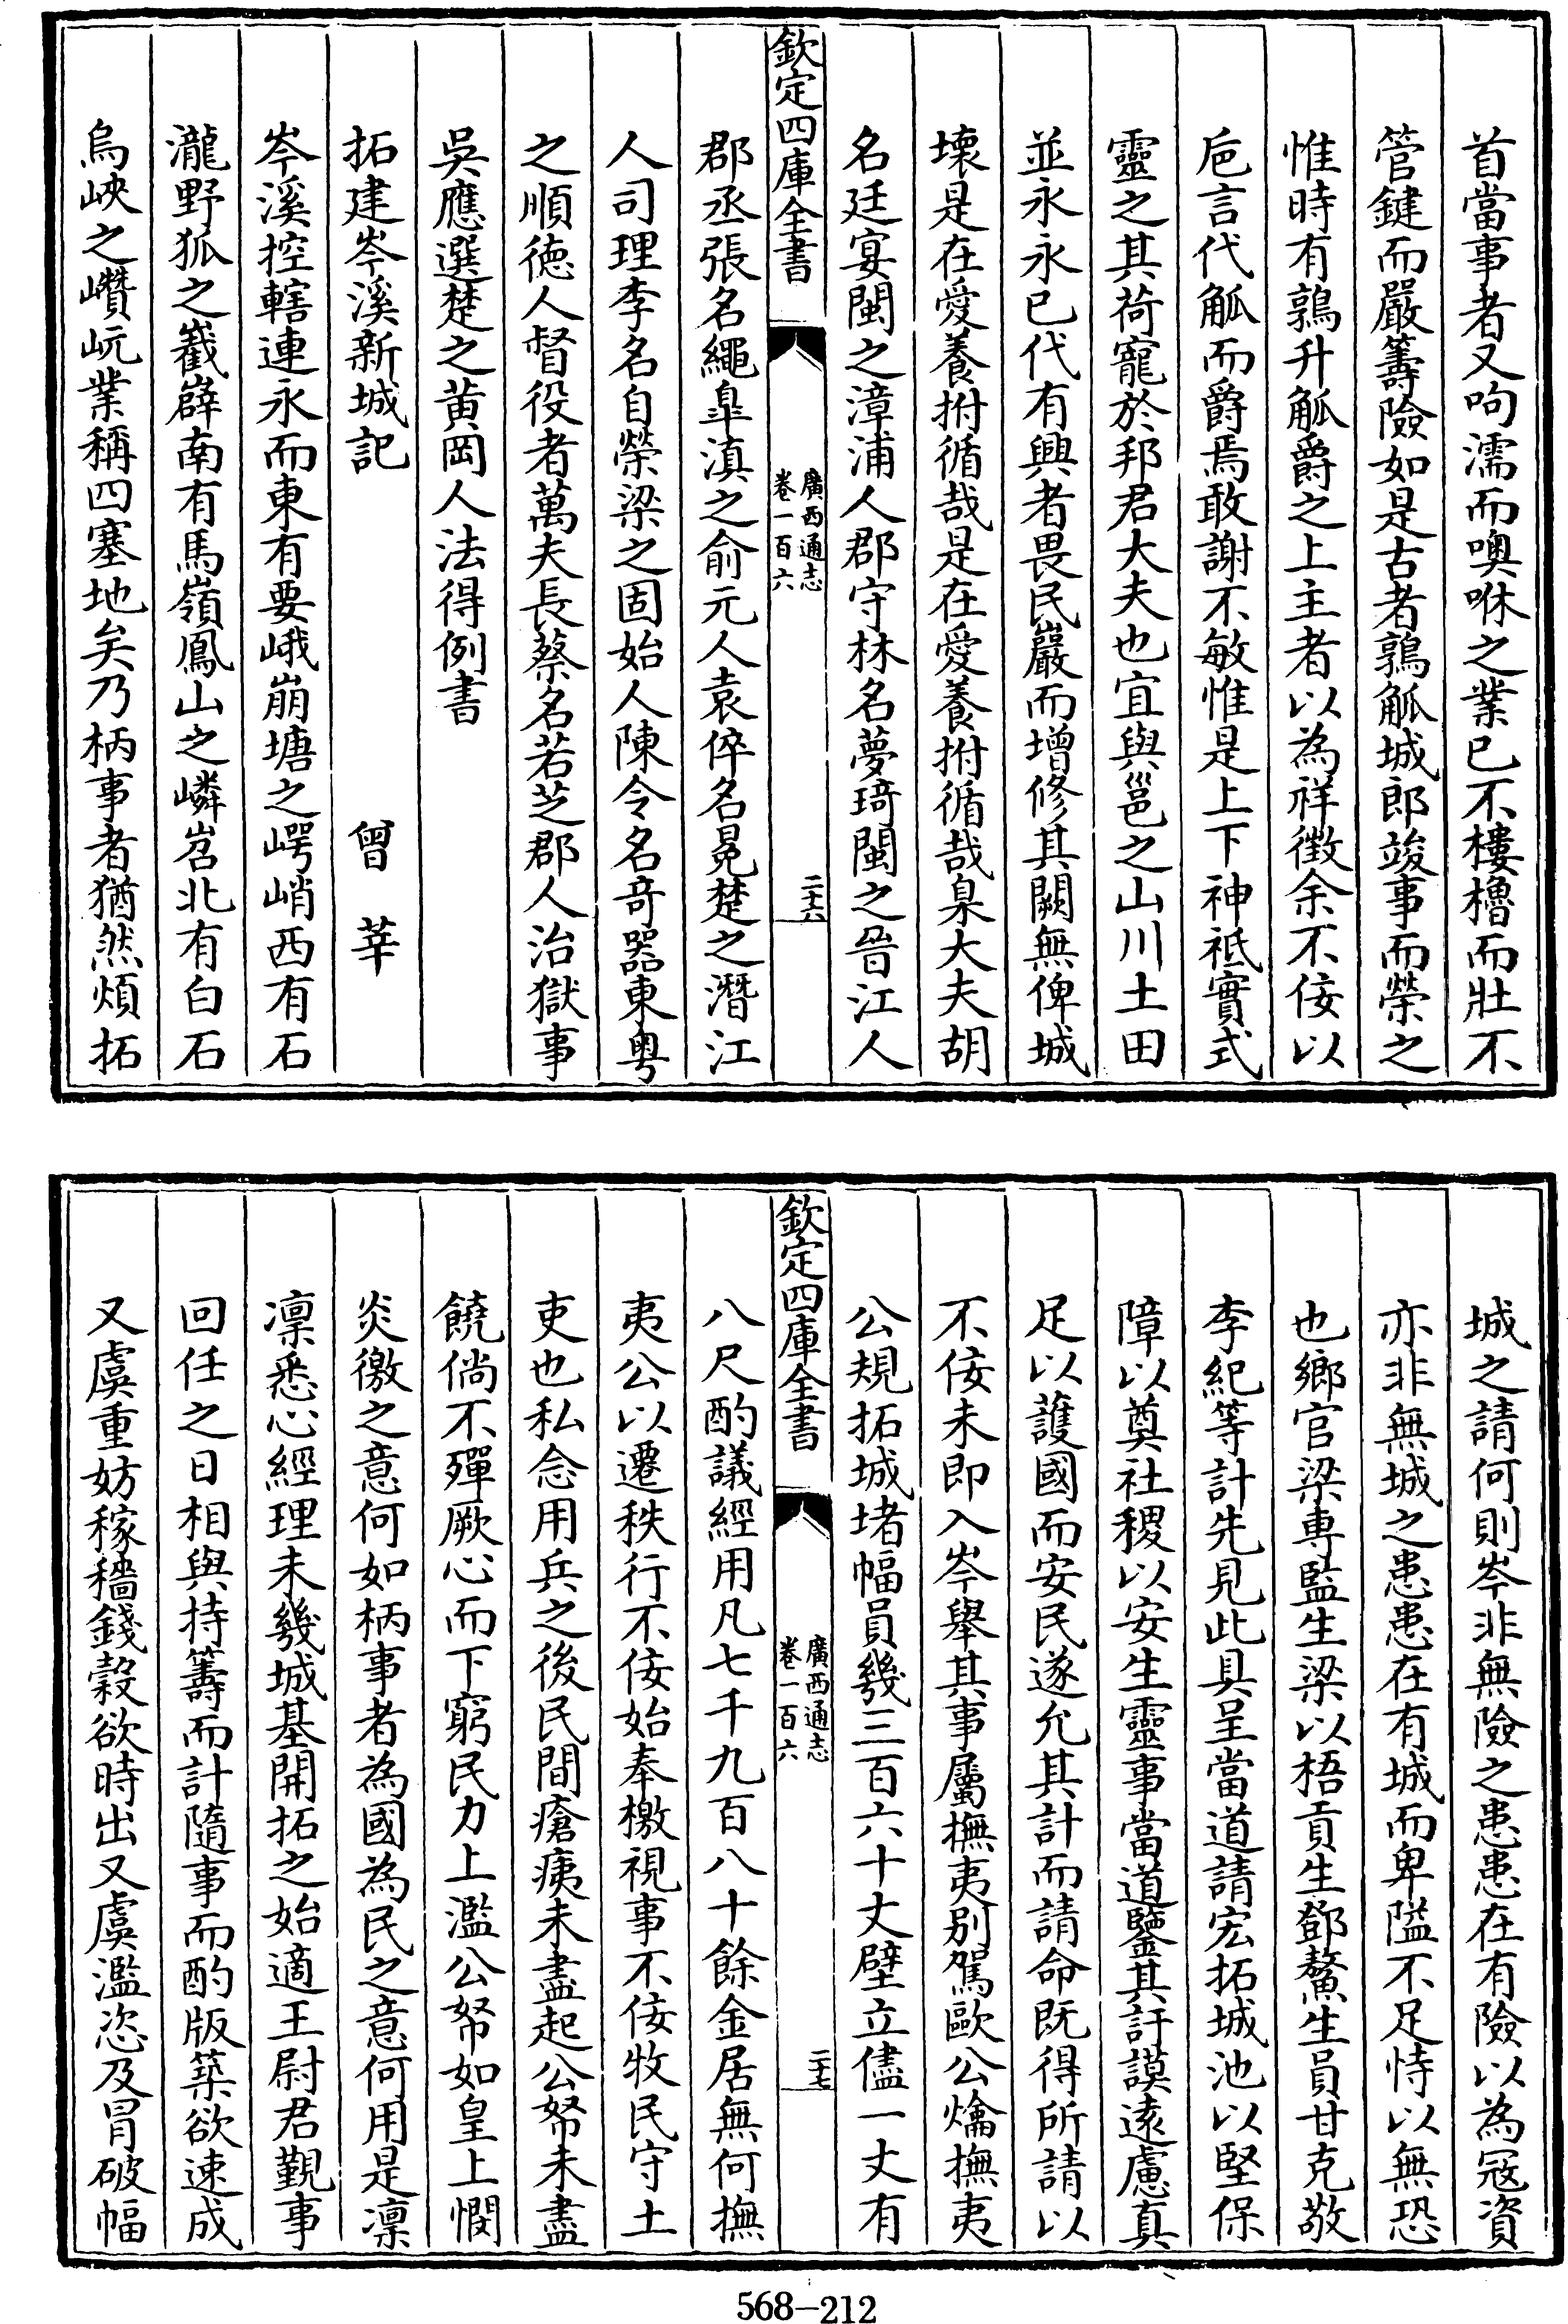 首當事者又呴濡而噢咻之業已不樓櫓而壯不
管鍵而嚴籌險如是古者鶉觚城郎竣事而榮之
惟時有鶉升觚爵之上主者以為祥徴余不佞以
巵言代觚而爵焉敢謝不敏惟是上下神祗實式
靈之其荷寵於邦君大夫也宜與邕之山川土田
並永永已代有興者畏民巖而增修其闕無俾城
壊是在愛養拊循哉是在愛養拊循哉臬大夫胡
名廷宴閩之漳浦人郡守林名夢琦閩之晉江人
欽定四庫全書 廣西通志 卷一百六 二十六
郡丞張名繩臯滇之俞元人袁倅名冕楚之潛江
人司理李名自榮梁之固始人陳令名竒器東粤
之順徳人督役者萬夫長蔡名若芝郡人治獄事
吳應選楚之黄岡人法得例書
拓建岑溪新城記 曾莘
岑溪控轄連永而東有要峨崩塘之崿峭西有石
瀧野狐之嶻嶭南有馬嶺鳳山之嶙岧北有白石
烏峽之巑岏業稱四塞地矣乃柄事者猶然煩拓
城之請何則岑非無險之患患在有險以為冦資
亦非無城之患患在有城而卑隘不足恃以無恐
也鄉官梁專監生梁以梧貢生鄧鰲生員甘克敬
李紀等計先見此具呈當道請宏拓城池以堅保
障以奠社稷以安生靈事當道鑒其訏謨逺慮真
足以䕶國而安民遂允其計而請命既得所請以
不佞未即入岑舉其事屬撫夷别駕歐公爚撫夷
公規拓城堵幅員幾三百六十丈壁立儘一丈有
欽定四庫全書 廣西通志 卷一百六 二十七
八尺酌議經用凡七千九百八十餘金居無何撫
夷公以遷秩行不佞始奉檄視事不佞牧民守土
吏也私念用兵之後民間瘡痍未盡起公帑未盡
饒倘不殫厥心而下窮民力上濫公帑如皇上憫
炎徼之意何如柄事者為國為民之意何用是凛
凛悉心經理未幾城基開拓之始適王尉君覲事
回任之日相與持籌而計隨事而酌版築欲速成
又虞重妨稼穡錢穀欲時出又虞濫恣及冐破幅
568-212